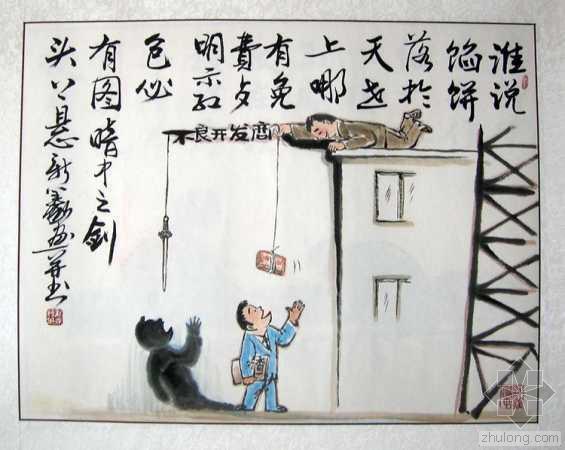 谁说
馅饼
落於
天世
上哪
有免
費歺
明示红
包必
有图暗中之剑
头上悬
画并书
不良开发商
酒
zhulong.com